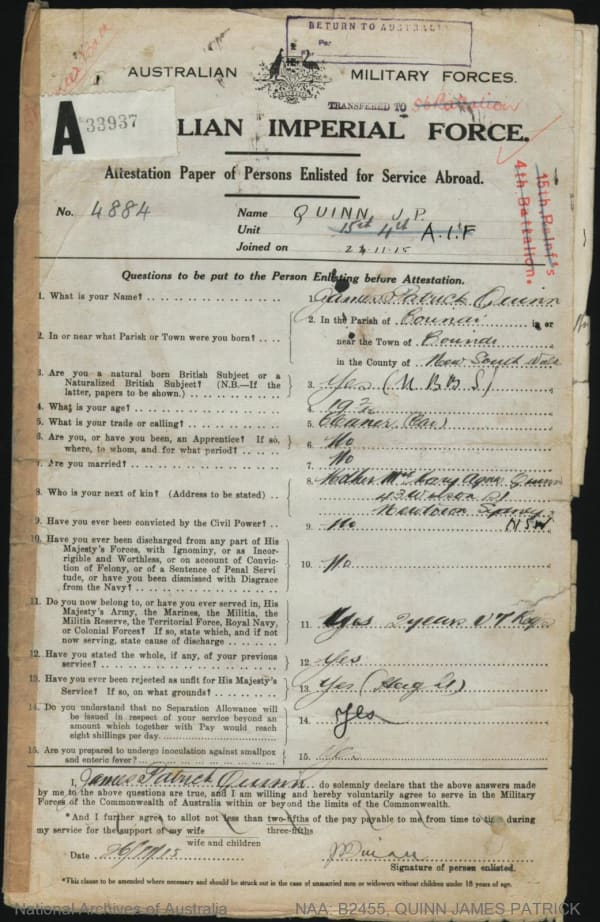 RETURN TO AUSTRALIA
Per
AUSTRALIAN MILITARY FORCES.
TRANSFERRED TO 56 Battalion
A 33937
LIAN IMPERIAL FORCE.
Attestation Paper of Persons Enlisted for Service Abroad.
15th Reinf's
4th Battalion.
No. 4884
Name QUINN J.P.
Unit 15th 4th A.I.F
Joined on 24-11-15
Questions to be put to the Person Enlisting before Attestation.
1. What is your Name? 1. James Patrick Quinn
2. In or near what Parish or Town were you born? 2. In the Parish of in or
near the Town of
in the County of New South Wales
3. Are you a natural born British Subject or a
Naturalized British Subject? (N.B.—If the
latter, papers to be shown.) 3. Yes (N B B S)
4. What is your age? 4. 19
5. What is your trade or calling? 5. Cleaner (Car)
6. Are you, or have you been, an Apprentice? If so,
where, to whom, and for what period? 6. No
7. Are you married? 7. No
8. Who is your next of kin? (Address to be stated) 8. Mother Mrs Mary Agnes Quinn
43 Wilson St
Newtown Sydney
NSW
9. Have you ever been convicted by the Civil Power? 9. No
10. Have you ever been discharged from any part of His
Majesty's Forces, with Ignominy, or as Incor-
rigible and Worthless, or on account of Convic-
tion of Felony, or of a Sentence of Penal Servi
tude, or have you been dismissed with Disgrace
from the Navy? 10. No
11. Do you now belong to, or have you ever served in, His
Majesty's Army, the Marines, the Militia, the
Militia Reserve, the Territorial Force, Royal Navy,
or Colonial Forces? If so, state which, and if not
now serving, state cause of discharge 11. Yes 2 years
12. Have you stated the whole, if any, of your previous
service? 12. Yes
13. Have you ever been rejected as unfit for His Majesty's
Service? If so, on what grounds? 13. Yes (Height)
14. Do you understand that no Separation Allowance will
be issued in respect of your service beyond an
amount which together with Pay would reach
eight shillings per day. 14. Yes
15. Are you prepared to undergo inoculation against smallpox
and enteric fever? 15. Yes
I, James Patrick Quinn, do solemnly declare that the above answers made
by me to the above questions are true, and I am willing and hereby voluntarily agree to serve in the Military
Forces of the Commonwealth of Australia within or beyond the limits of the Commonwealth.
*And I further agree to allot not less than two-fifths of the pay payable to me from time to time during
three-fifths
my service for the support of my wife
wife and children
Date 26/11/15 J P Quinn
Signature of person enlisted.
*This clause to be amended where necessary and should be struck out in the case of unmarried men or widowers without children under 18 years of age.
National Archives of Australia NAA: B2455, QUINN JAMES PATRICK